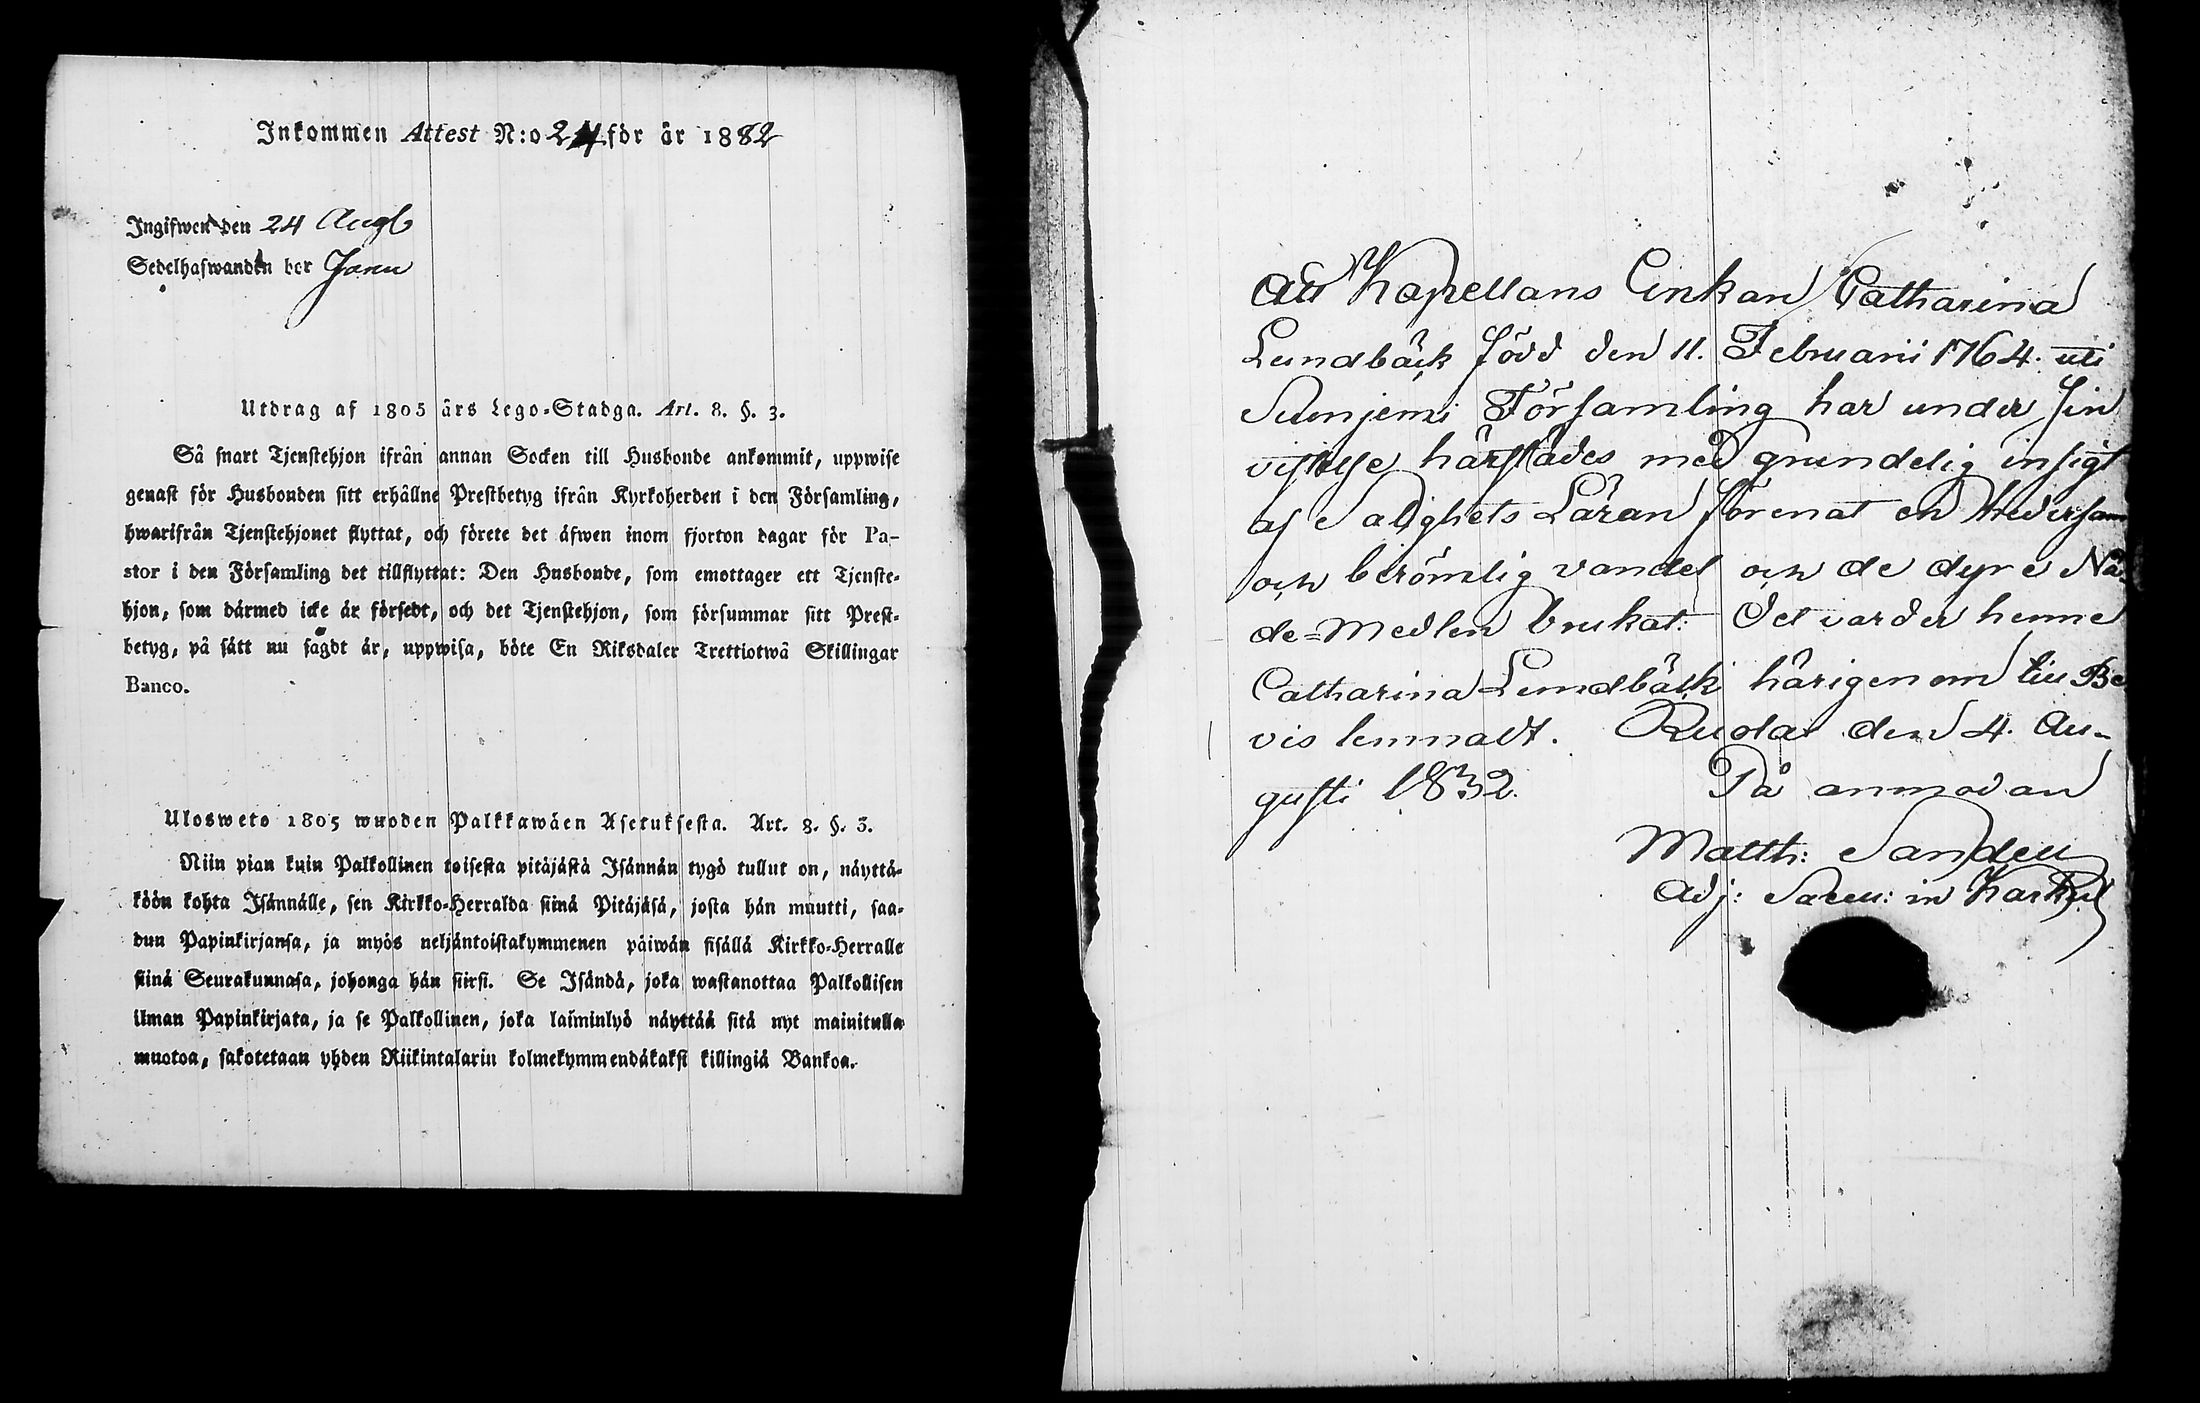 Inkommen Attest N:o 24 för år 1832
Ingifwen den 24 Aug
Sedelhafwanden bor
Utdrag af 1805 års Lego-Stadga. Art. 8. §. 3.
Så snart Tjenstehjon ifrån annan Socken till Husbonde ankommit, uppwise
genast för Husbonden sitt erhållne Prestbetyg ifrån Kyrkoherden i den Församling,
hwarifrån Tjenstehjonet flyttat, och förete det äfwen inom fjorton dagar för Pa-
stor i den Församling det tillflyttat: Den Husbonde, som emottager ett Tjenste-
hjon, som därmed icke är försedt, och det Tjenstehjon, som försummar sitt Prest-
betyg, på sätt nu sagdt är, uppwisa, böte En Riksdaler Trettiotwå Skillingar
Banco.
Ulosweto 1805 wuoden Palkkawäen Asetuksesta. Art. 8. §. 3.
Niin pian kuin Palkollinen toisesta pitäjästä Isännän tygö tullut on, näyttä-
köön kohta Isännälle, sen Kirkko-Herralda siinä Pitäjäsä, josta hän muutti, saa-
dun Papinkirjansa, ja myös neljäntoistakymmenen päiwän sisällä Kirkko-Herralle
siinä Seurakunnasa, johonga hän siirsi. Se Isändä, joka wastanottaa Palkollisen
ilman Papinkirjata, ja se Palkollinen, joka laiminlyö näyttää sitä nyt mainitulla
muotoa, sakotetaan yhden Riikintalarin kolmekymmendäkaksi killingiä Bankoa.
Att Kapellans Enkan Catharina
Lundbäck född den 11. Februarii 1764. uti
Suonjemi Församling har under sin
vistelse härstädes med grundelig insigt
af Salighets Läran förenat en hedersam
och berömlig vandel och de dyre Nå-
de-Medlen brukat: Det varder henne
Catharina Lundbäck härigenom till Be-
vis lemnadt. Ruola den 4. Au-
gusti 1832.
På anmodan
Matth: Sandell
Adj: Sacell: in Karkku